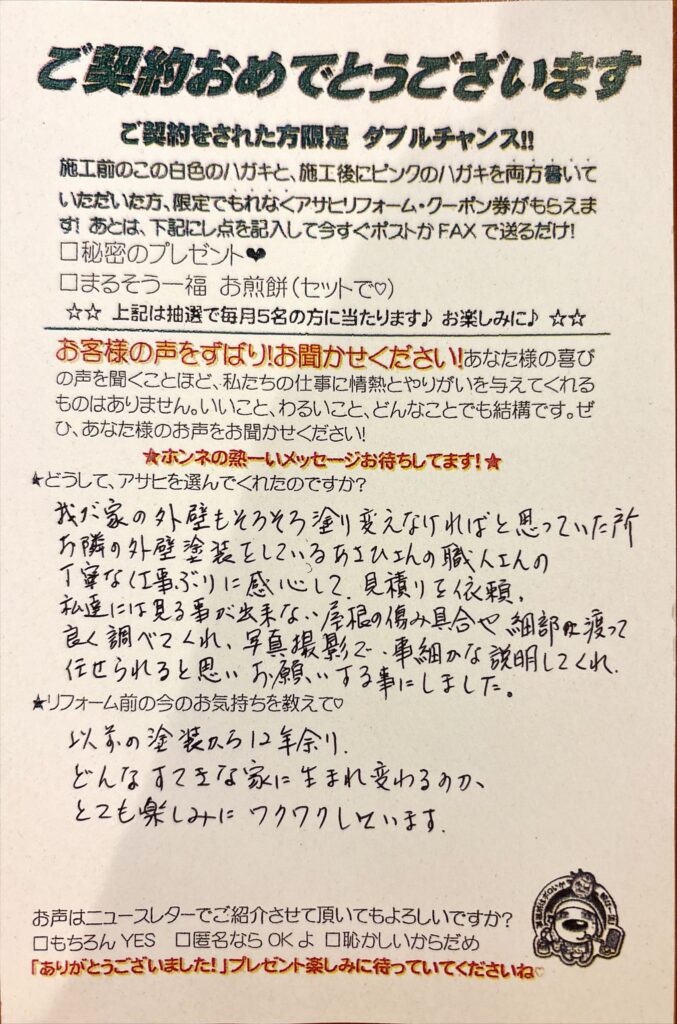 ご契約おめでとうございます
ご契約をされた方限定 ダブルチャンス!!
施工前のこの白色のハガキと、施工後にピンクのハガキを両方書いて
いただいた方、限定でもれなくアサヒリフォーム・クーポン券がもらえま
す! あとは、下記にレ点を記入して今すぐポストかFAXで送るだけ!
□秘密のプレゼント❤
□まるそう一福 お煎餅(セットで♡)
☆☆ 上記は抽選で毎月5名の方に当たります♪ お楽しみに♪ ☆☆
お客様の声をずばり!お聞かせください!あなた様の喜び
の声を聞くことほど、私たちの仕事に情熱とやりがいを与えてくれる
ものはありません。いいこと、わるいこと、どんなことでも結構です。ぜ
ひ、あなた様のお声をお聞かせください!
★ホンネの熱ーいメッセージお待ちしてます!★
★どうして、アサヒを選んでくれたのですか?
我が家の外壁もそろそろ塗り変えなければと思っていた所
お隣の外壁塗装をしているあさひさんの職人さんの
丁寧な仕事ぶりに感心して、見積りを依頼。
私達には見る事が出来ない屋根の傷み具合や細部に渡って
良く調べてくれ、写真撮影で、事細かな説明してくれ、
任せられると思いお願いする事にしました。
★リフォーム前の今のお気持ちを教えて♡
以前の塗装から12年余り、
どんなすてきな家に生まれ変わるのか、
とても楽しみにワクワクしています。
お声はニュースレターでご紹介させて頂いてもよろしいですか?
□もちろんYES □匿名ならOKよ □恥かしいからだめ
「ありがとうございました!」プレゼント楽しみに待っていてくださいね♡